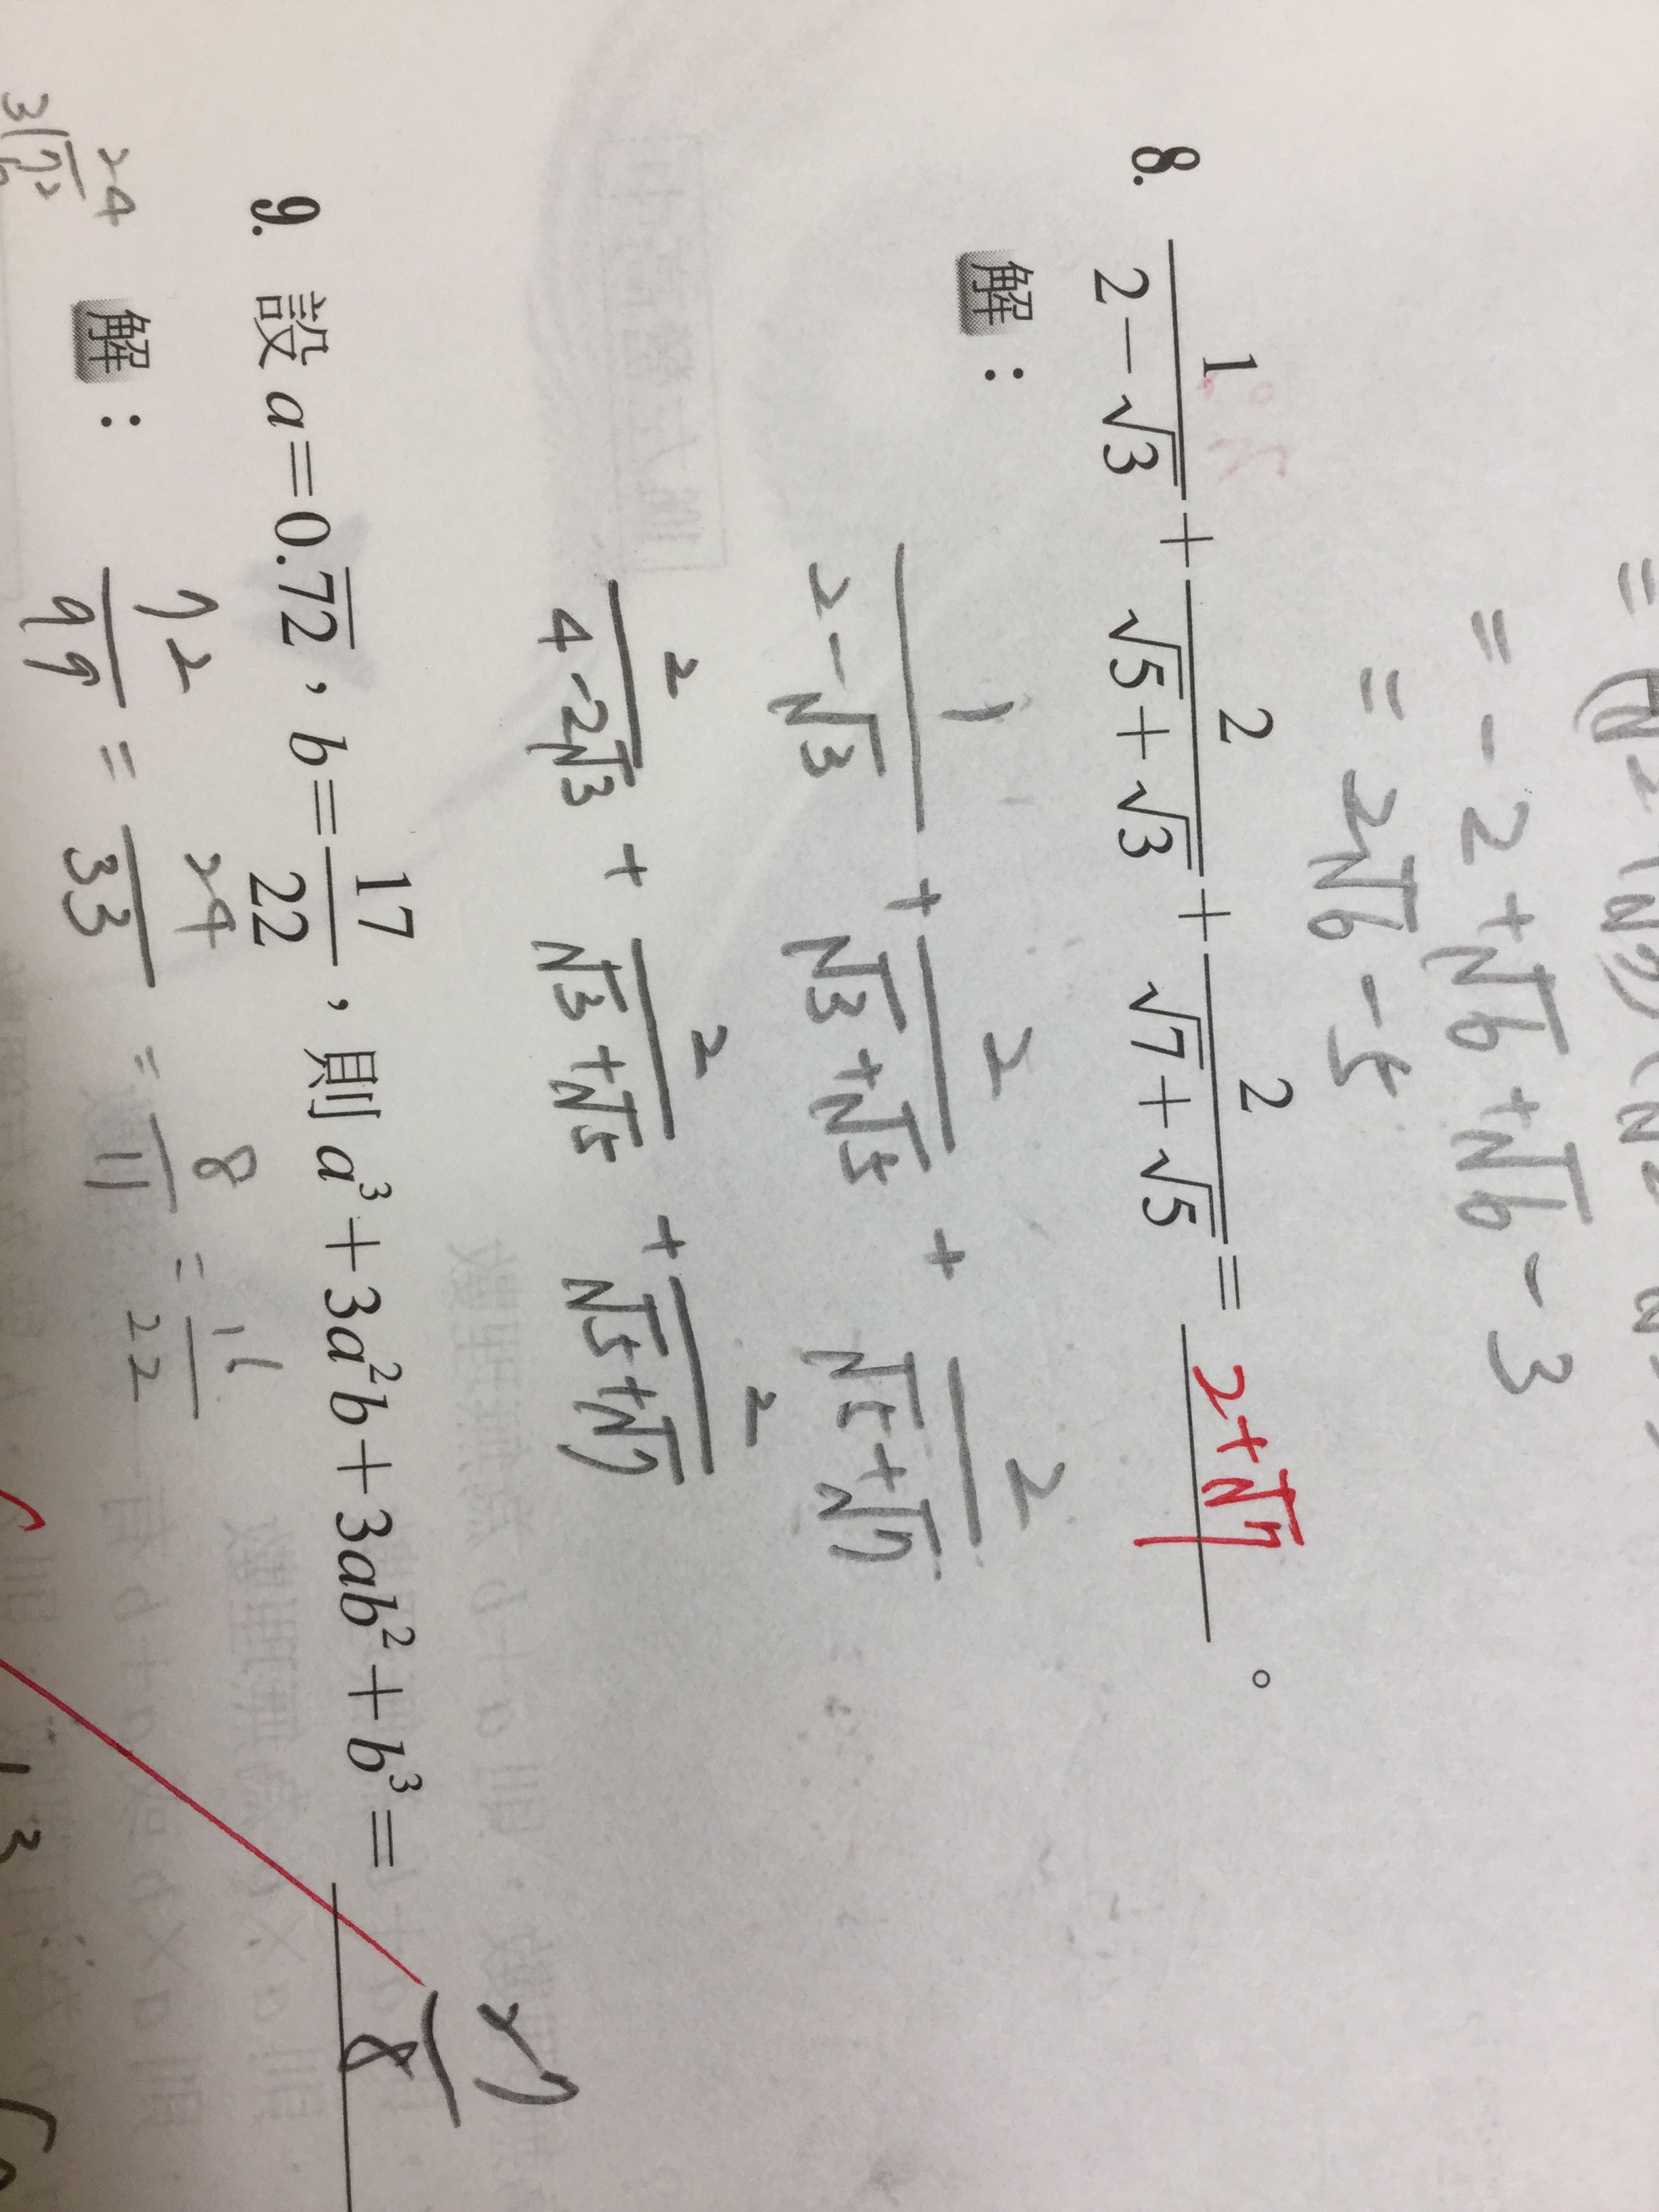 = -2+√6+√6-3
= 2√6-5
8. 1/(2-√3) + 2/(√5+√3) + 2/(√7+√5) = 2+√7 。
解：
1/(2-√3) + 2/(√3+√5) + 2/(√5+√7)
2/(4-2√3) + 2/(√3+√5) + 2/(√5+√7)
9. 設 a=0.7̅2̅，b=17/22，則 a³+3a²b+3ab²+b³= 27/8
解：
72/99 = 24/33 = 8/11 = 16/22
24
3 72